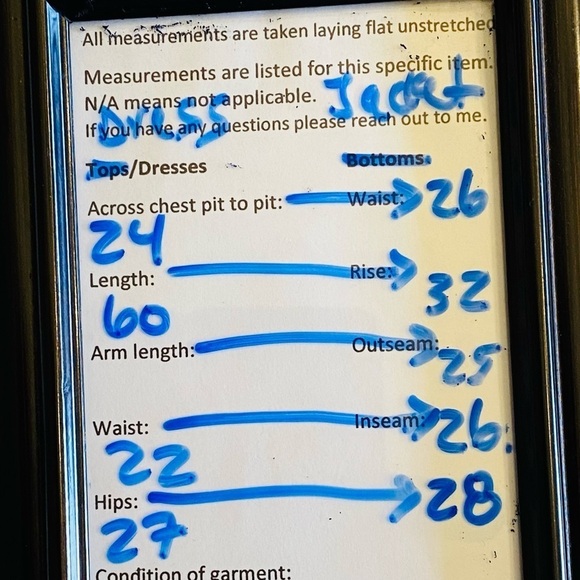 All measurements are taken laying flat unstretched
Measurements are listed for this specific item.
N/A means not applicable. Jacket
Dress
If you have any questions please reach out to me.
Tops/Dresses Bottoms
Across chest pit to pit: Waist: 26
24
Length: Rise: 32
60
Arm length: Outseam: 25
Waist: Inseam: 26
22
Hips: 28
27
Condition of garment: